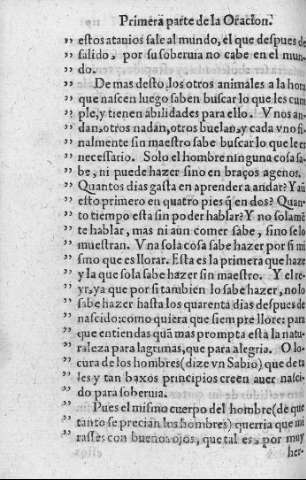 Primera parte de la Oracion.
” estos atauios sale al mundo, el que despues de
” salido, por su soberuia no cabe en el mun-
” do.
” De mas desto, los otros animales a la hora
” que nascen luego saben buscar lo que les cum
” ple, y tienen abilidades para ello. Vnos an-
” dan, otros nadan, otros buelan, y cada vno fi-
” nalmente sin maestro sabe buscar lo que le es
” necessario. Solo el hombre ninguna cosa sa-
” be, ni puede hazer sino en braços agenos.
” Quantos dias gasta en aprender a andar? Y aũ
” esto primero en quatro pies q̃ en dos? Quan-
” to tiempo esta sin poder hablar? Y no solamẽ
” te hablar, mas ni aun comer sabe, sino se lo
” muestran. Vna sola cosa sabe hazer por si mi
” smo que es llorar. Esta es la primera que haze
” y la que sola sabe hazer sin maestro. Y el re-
” yr, ya que por si tambien lo sabe hazer, no lo
” sabe hazer hasta los quarenta dias despues de
” nascido: como quiera que siempre llore: para
” que entiendas quã mas prompta esta la natu-
” raleza para lagrimas, que para alegria. O lo-
” cura de los hombres (dize vn Sabio) que de ta
” les y tan baxos principios creen auer nasci-
” do para soberuia.
” Pues el mismo cuerpo del hombre (de que
” tanto se precian los hombres) querria que mi
” rasses con buenos ojos, que tal es, por muy
” her-